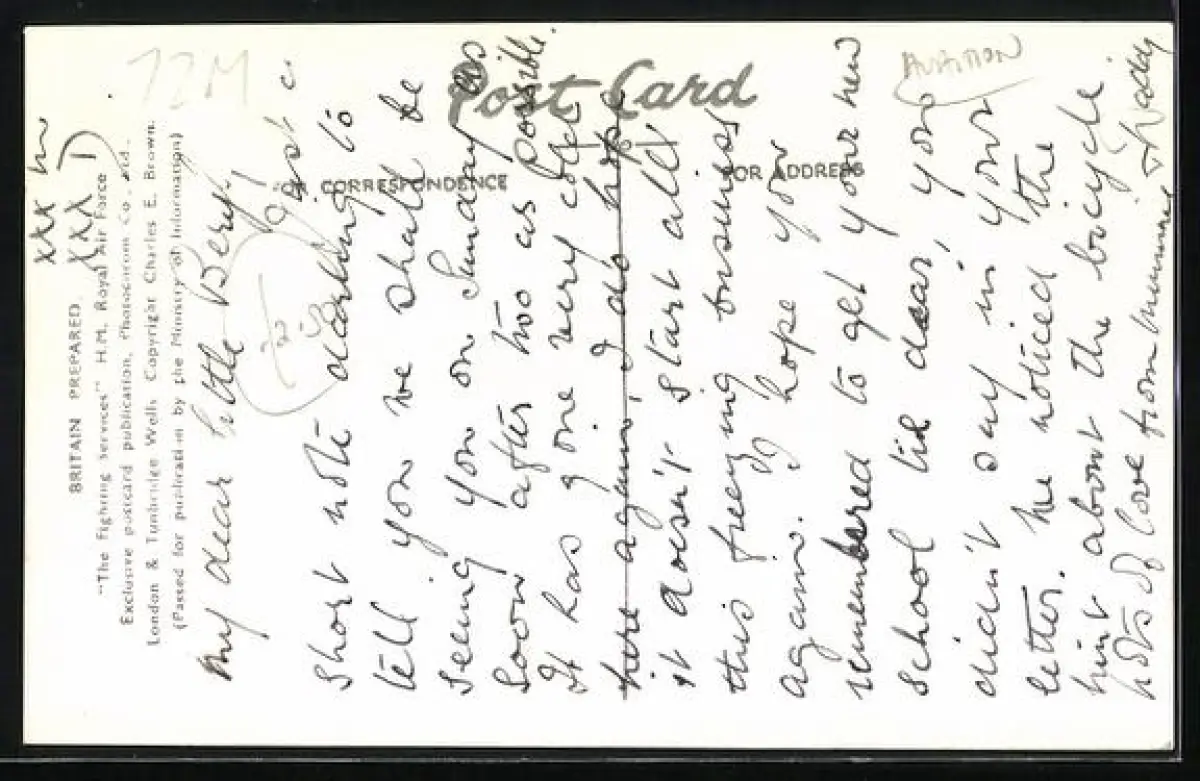 BRITAIN PREPARED
"The Fighting Services" H.M. Royal Air Force
Exclusive postcard publication, Photochrom Co. Ltd.
London & Tunbridge Wells Copyright Charles E. Brown.
(Passed for publication by the Ministry of Information)
Post Card
CORRESPONDENCE
FOR ADDRESS
72M
AVIATION
xxx
xxx
My dear little
Just a
short note darling to
tell you we shall be
seeing you on Sunday as
soon after two as possible.
It has gone very cold
here again, I do hope
it doesn't start all
this freezing business
again. I hope you
remembered to get your new
school tie dear, you
didn't say in your
letter. We noticed the
hint about the bicycle
lots of love from Mummie & Daddy